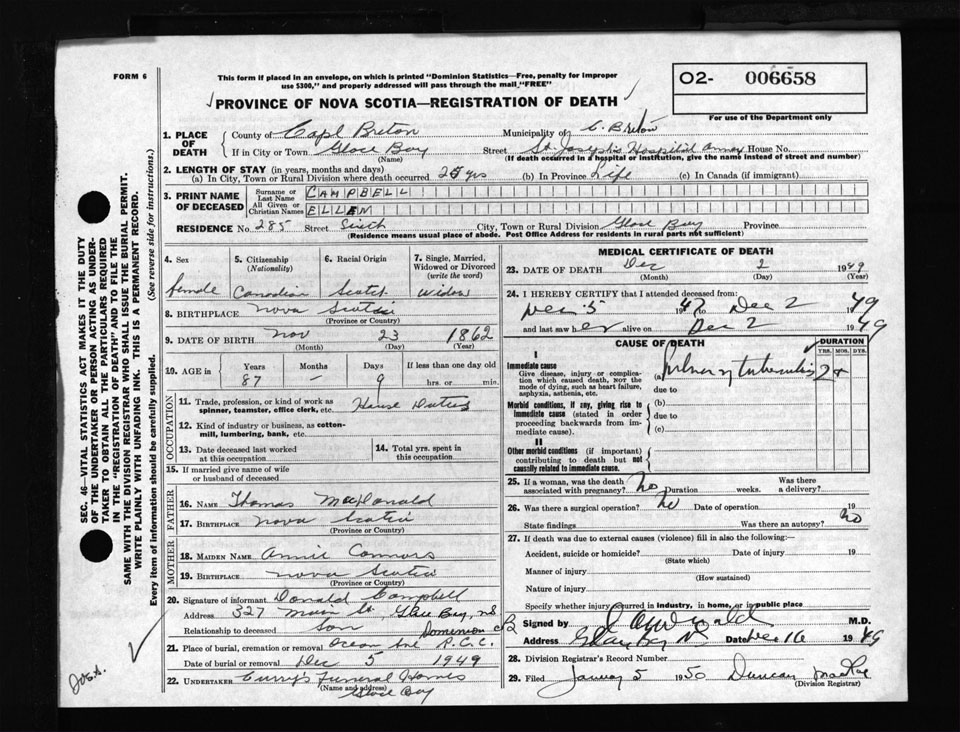 FORM 6
This form if placed in an envelope, on which is printed "Dominion Statistics—Free, penalty for improper
use $300," and properly addressed will pass through the mail "FREE"
O2- 006658
For use of the Department only
PROVINCE OF NOVA SCOTIA—REGISTRATION OF DEATH
1. PLACE OF DEATH
County of Cape Breton Municipality of C. Breton
If in City or Town Glace Bay Street St. Joseph's Hospital Annex House No.
(Name) (If death occurred in a hospital or institution, give the name instead of street and number)
2. LENGTH OF STAY (in years, months and days)
(a) In City, Town or Rural Division where death occurred 25 yrs (b) In Province Life (c) In Canada (if immigrant)
3. PRINT NAME OF DECEASED
Surname or Last Name CAMPBELL
All Given or Christian Names ELLEN
RESIDENCE No. 285 Street Sixth City, Town or Rural Division Glace Bay Province
(Residence means usual place of abode. Post Office Address for residents in rural parts not sufficient)
4. Sex female
5. Citizenship (Nationality) Canadian
6. Racial Origin Scotch
7. Single, Married, Widowed or Divorced (write the word) widow
8. BIRTHPLACE Nova Scotia
(Province or Country)
9. DATE OF BIRTH Nov 23 1862
(Month) (Day) (Year)
10. AGE in Years Months Days If less than one day old
87 — 9 hrs. or min.
OCCUPATION
11. Trade, profession, or kind of work as spinner, teamster, office clerk, etc. House Duties
12. Kind of industry or business, as cotton-mill, lumbering, bank, etc.
13. Date deceased last worked at this occupation
14. Total yrs. spent in this occupation
15. If married give name of wife or husband of deceased
FATHER
16. NAME Thomas MacDonald
17. BIRTHPLACE Nova Scotia
MOTHER
18. MAIDEN NAME Annie Connors
19. BIRTHPLACE Nova Scotia
(Province or Country)
20. Signature of informant Donald Campbell
Address 327 Main St., Glace Bay, NS
Relationship to deceased Son
Dominion
21. Place of burial, cremation or removal Ocean Ave R.C.C.
Date of burial or removal Dec 5 1949
22. UNDERTAKER Curry's Funeral Homes
(Name and address)
Glace Bay
MEDICAL CERTIFICATE OF DEATH
23. DATE OF DEATH Dec 2 1949
(Month) (Day) (Year)
24. I HEREBY CERTIFY that I attended deceased from:
Dec 2 1949
and last saw her alive on Dec 2 1949
CAUSE OF DEATH
DURATION
YRS. MOS. DYS.
I
Immediate cause
Give disease, injury or complication which caused death, NOT the mode of dying, such as heart failure, asphyxia, asthenia, etc.
(a) Pulmonary tuberculosis 2+
due to
Morbid conditions, if any, giving rise to immediate cause (stated in order proceeding backwards from immediate cause).
(b)
due to
(c)
II
Other morbid conditions (if important) contributing to death but not causally related to immediate cause.
25. If a woman, was the death associated with pregnancy? no Duration weeks. Was there a delivery?
26. Was there a surgical operation? no Date of operation 19
State findings Was there an autopsy? no
27. If death was due to external causes (violence) fill in also the following:—
Accident, suicide or homicide? Date of injury 19
(State which)
Manner of injury
(How sustained)
Nature of injury
Specify whether injury occurred in industry, in home, or in public place
Signed by M.D.
Address Glace Bay NS Date Dec 16 1949
28. Division Registrar's Record Number
29. Filed January 5 1950 Duncan MacRae
(Division Registrar)
SEC. 46—VITAL STATISTICS ACT MAKES IT THE DUTY
OF THE UNDERTAKER OR PERSON ACTING AS UNDER-
TAKER TO OBTAIN ALL THE PARTICULARS REQUIRED
IN THE "REGISTRATION OF DEATH" AND TO FILE THE
SAME WITH THE DIVISION REGISTRAR WHO SHALL ISSUE THE BURIAL PERMIT.
WRITE PLAINLY WITH UNFADING INK. THIS IS A PERMANENT RECORD.
Every item of information should be carefully supplied. (See reverse side for instructions.)